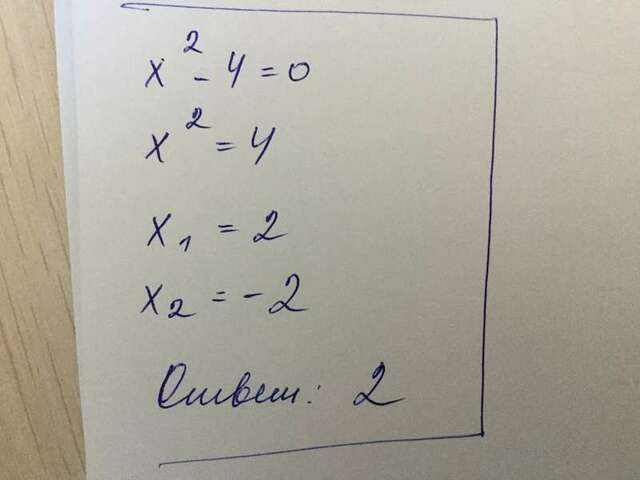 x² - 4 = 0
x² = 4
x₁ = 2
x₂ = -2
Ответ: 2